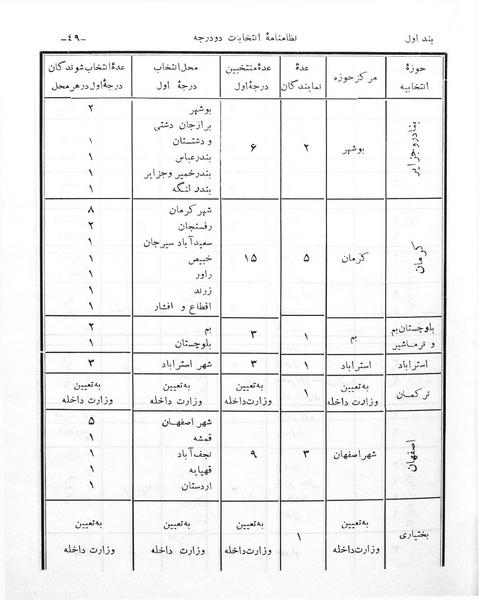 بند اول نظامنامهٔ انتخابات دودرجه -۴۹-
حوزهٔ انتخابیه مرکز حوزه عدهٔ نمایندگان عدهٔ منتخبین درجهٔ اول محل انتخاب درجهٔ اول عدهٔ انتخاب شوندگان درجهٔ اول در هر محل
بنادر و جزایر بوشهر ۲ ۶ بوشهر ۲
برازجان دشتی
و دشتستان ۱
بندرعباس ۱
بندر خمیر و جزایر ۱
بندر لنگه ۱
کرمان کرمان ۵ ۱۵ شهر کرمان ۸
رفسنجان ۲
سعیدآباد سیرجان ۱
خبیص ۱
راور ۱
زرند ۱
اقطاع و افشار ۱
بلوچستان بم و نرماشیر بم ۱ ۳ بم ۲
بلوچستان ۱
استراباد استراباد ۱ ۳ شهر استراباد ۳
ترکمان به تعیین وزارت داخله ۱ به تعیین وزارت داخله به تعیین وزارت داخله به تعیین وزارت داخله
اصفهان شهر اصفهان ۳ ۹ شهر اصفهان ۵
قمشه ۱
نجف‌آباد ۱
قهپایه ۱
اردستان ۱
بختیاری به تعیین وزارت داخله ۱ به تعیین وزارت داخله به تعیین وزارت داخله به تعیین وزارت داخله